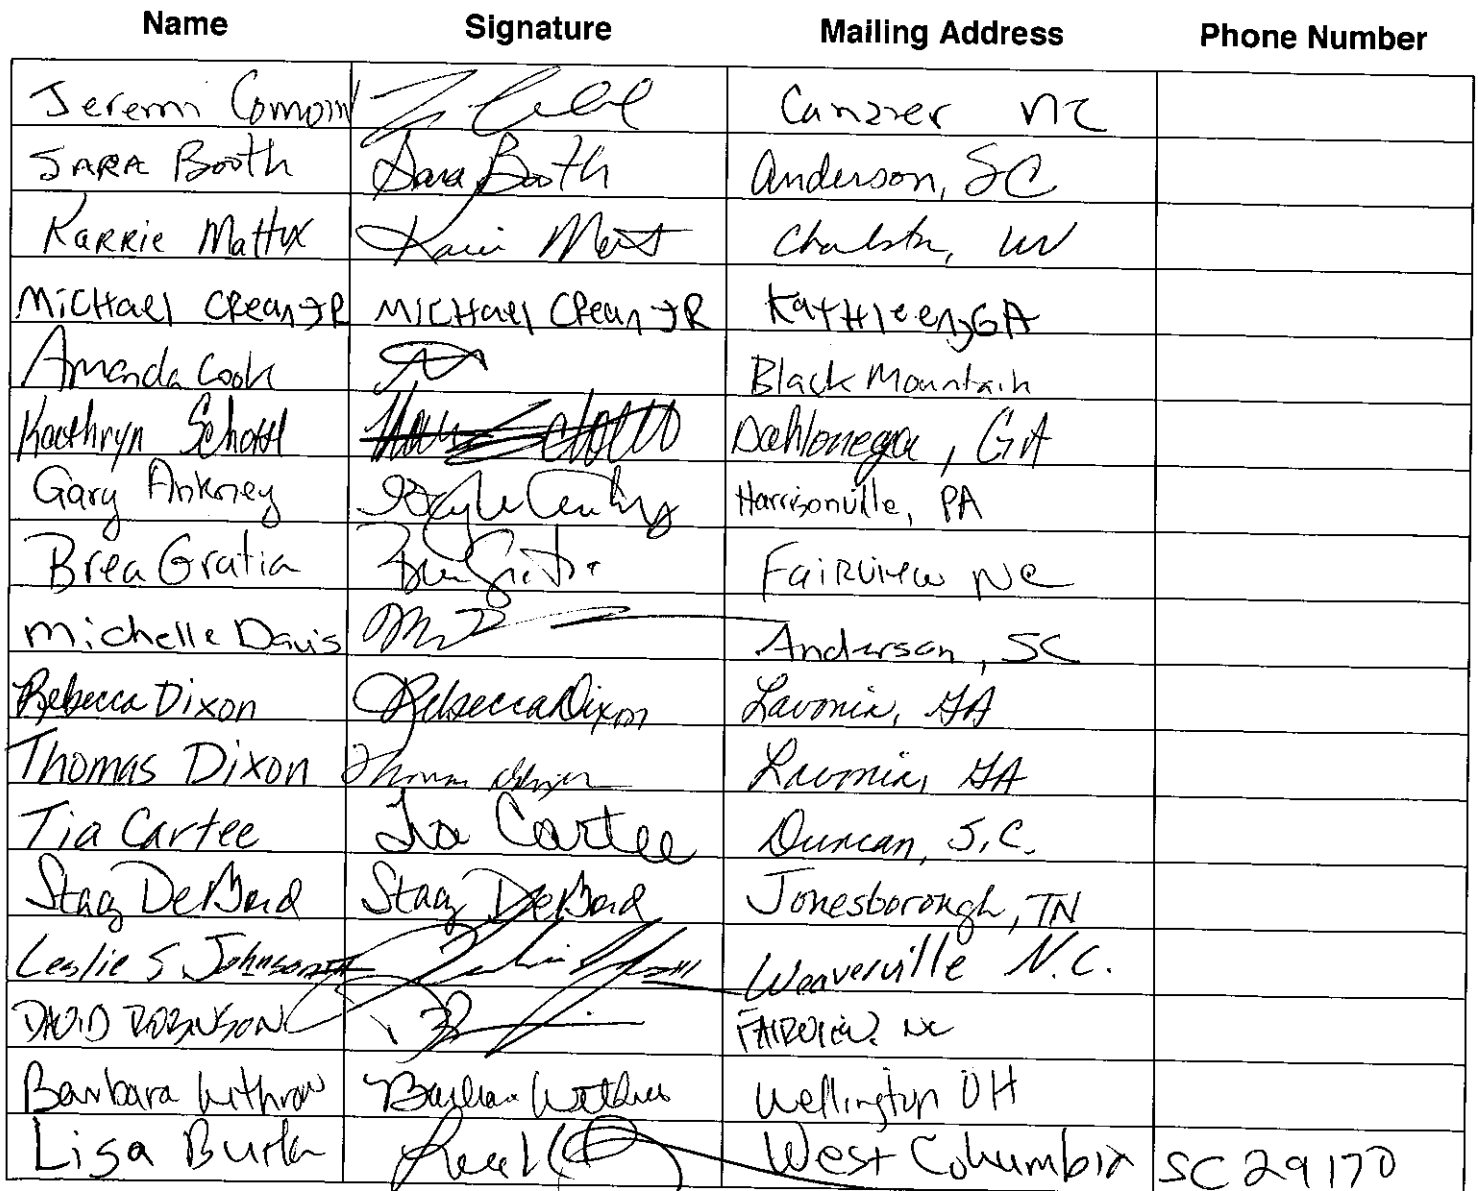 Name Signature Mailing Address Phone Number
Jeremi Canzzer NC
SARA Booth Sara Booth Anderson, SC
KARRIE Mattox Charlstn, WV
MICHAEl CRean JR MICHAEl CRean JR KATHleen, GA
Amanda Cook Black Mountain
Kathryn Dahlonega, GA
Gary Ankney Harrisonville, PA
Brea Gratia Fairview NC
Michelle Davis Anderson, SC
Rebecca Dixon Rebecca Dixon Lavonia, GA
Thomas Dixon Thomas Dixon Lavonia, GA
Tia Cartee Tia Cartee Duncan, S.C.
Stacy DeBord Stacy DeBord Jonesborough, TN
Leslie S. Johnson Weaverville N.C.
DAVID ROBINSON FAIRVIEW NC
Barbara Withrow Barbara Withrow Wellington OH
Lisa West Columbia SC 29170